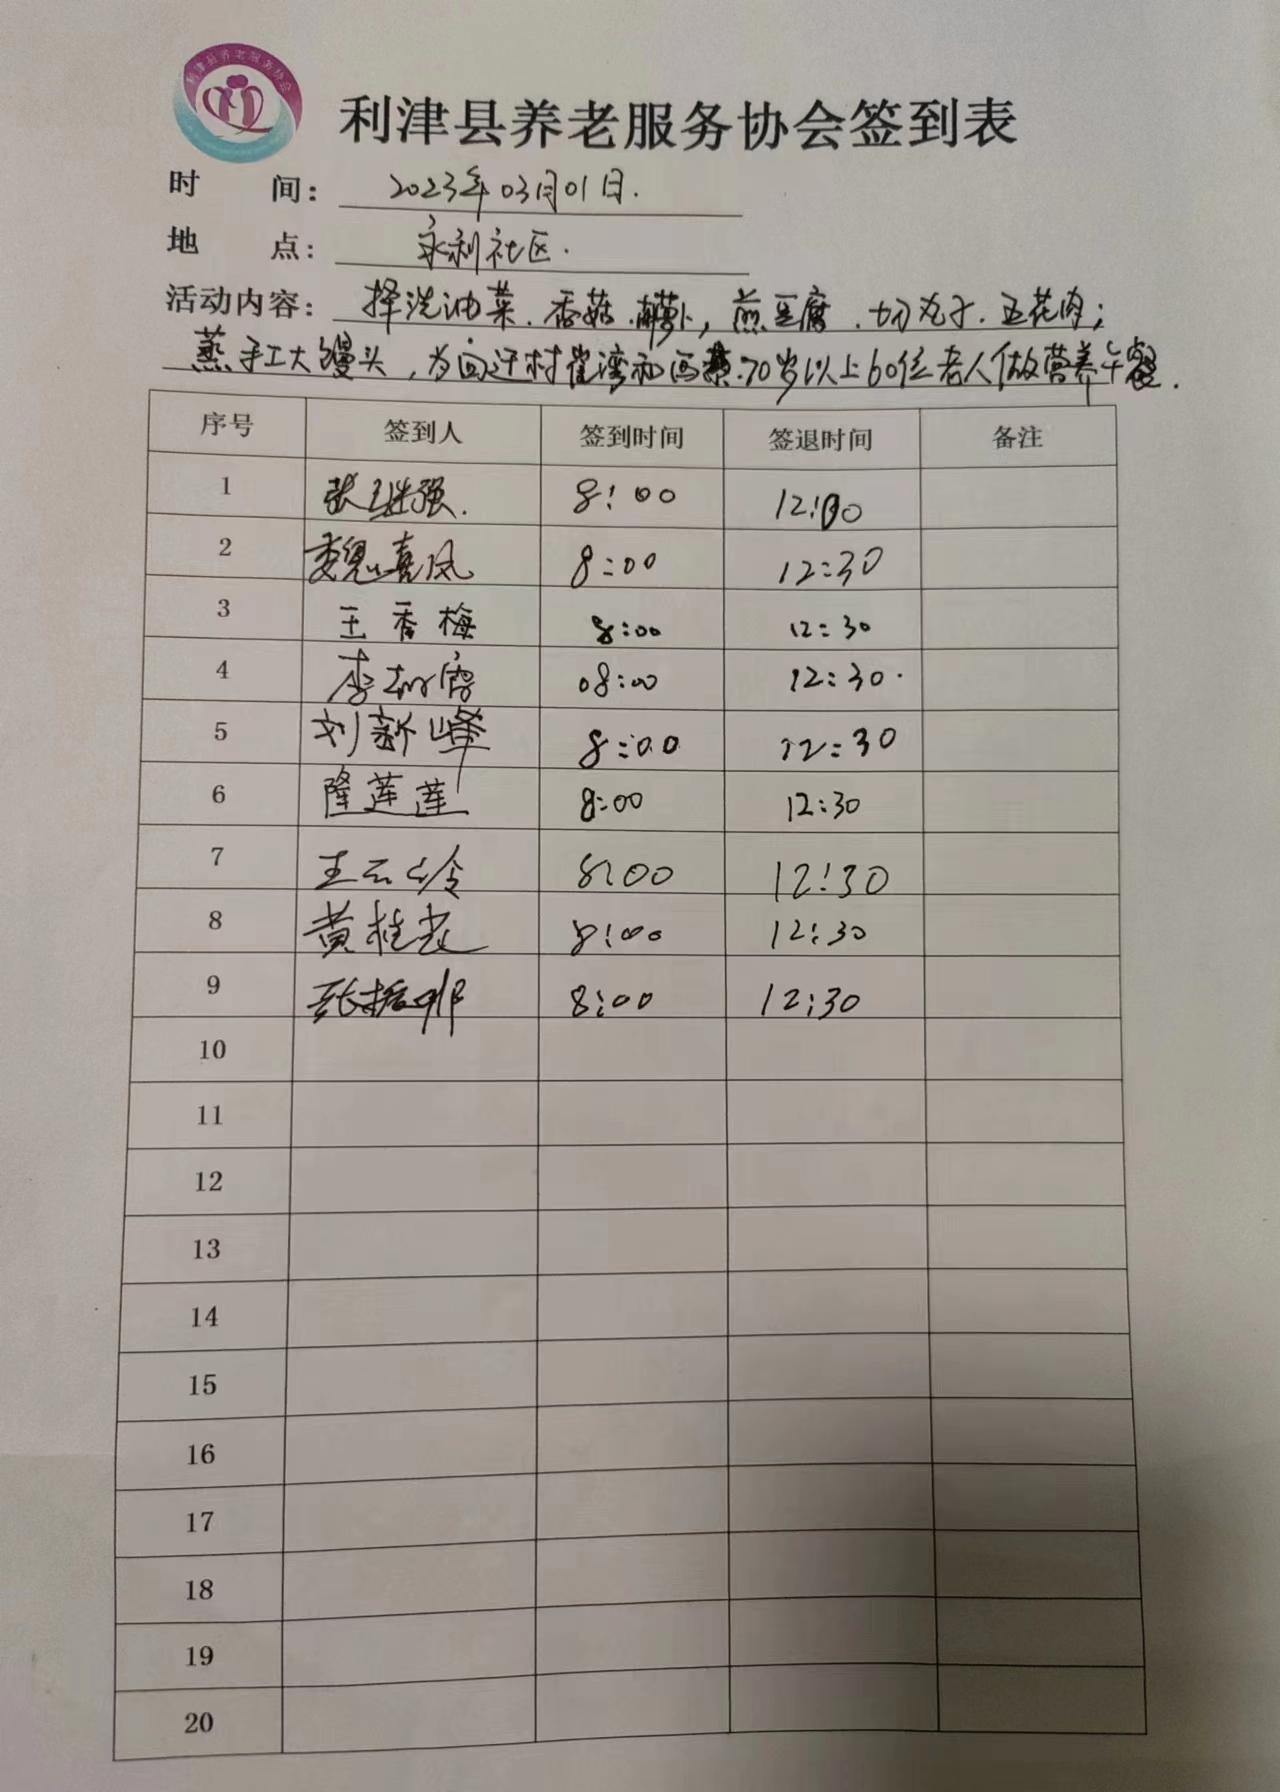 利津县养老服务协会
利津县养老服务协会签到表
时 间： 2023年03月01日.
地 点： 永利社区.
活动内容： 择洗油菜.香菇.胡萝卜，煎豆腐.切丸子.五花肉；
蒸手工大馒头，为回迁村崔湾和西 70岁以上60位老人做营养午餐.
序号 签到人 签到时间 签退时间 备注
1 张继强. 8:00 12:30
2 魏喜凤 8:00 12:30
3 王香梅 8:00 12:30
4 李 08:00 12:30.
5 刘新峰 8:00 12:30
6 隆莲莲 8:00 12:30
7 王云 8:00 12:30
8 黄桂 8:00 12:30
9 张 8:00 12:30
10
11
12
13
14
15
16
17
18
19
20